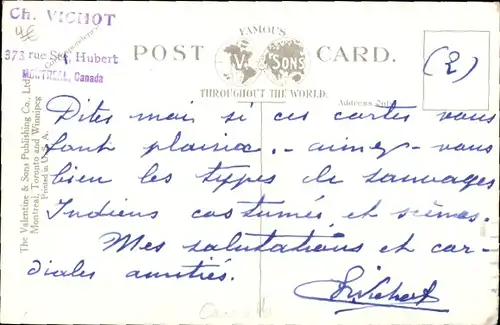 Ch. VICHOT
373 rue St. Hubert
MONTREAL, Canada
Correspondence
POST CARD.
FAMOUS
V. & SONS
THROUGHOUT THE WORLD.
Address Only
(2)
The Valentine & Sons Publishing Co., Ltd.
Montreal, Toronto and Winnipeg
Printed in U.S.A.
Dites moi si ces cartes vous
font plaisir. - aimez-vous
bien les types de sauvages
Indiens costumés et scènes.
Mes salutations et cor-
diales amitiés.
ChVichot
Canada